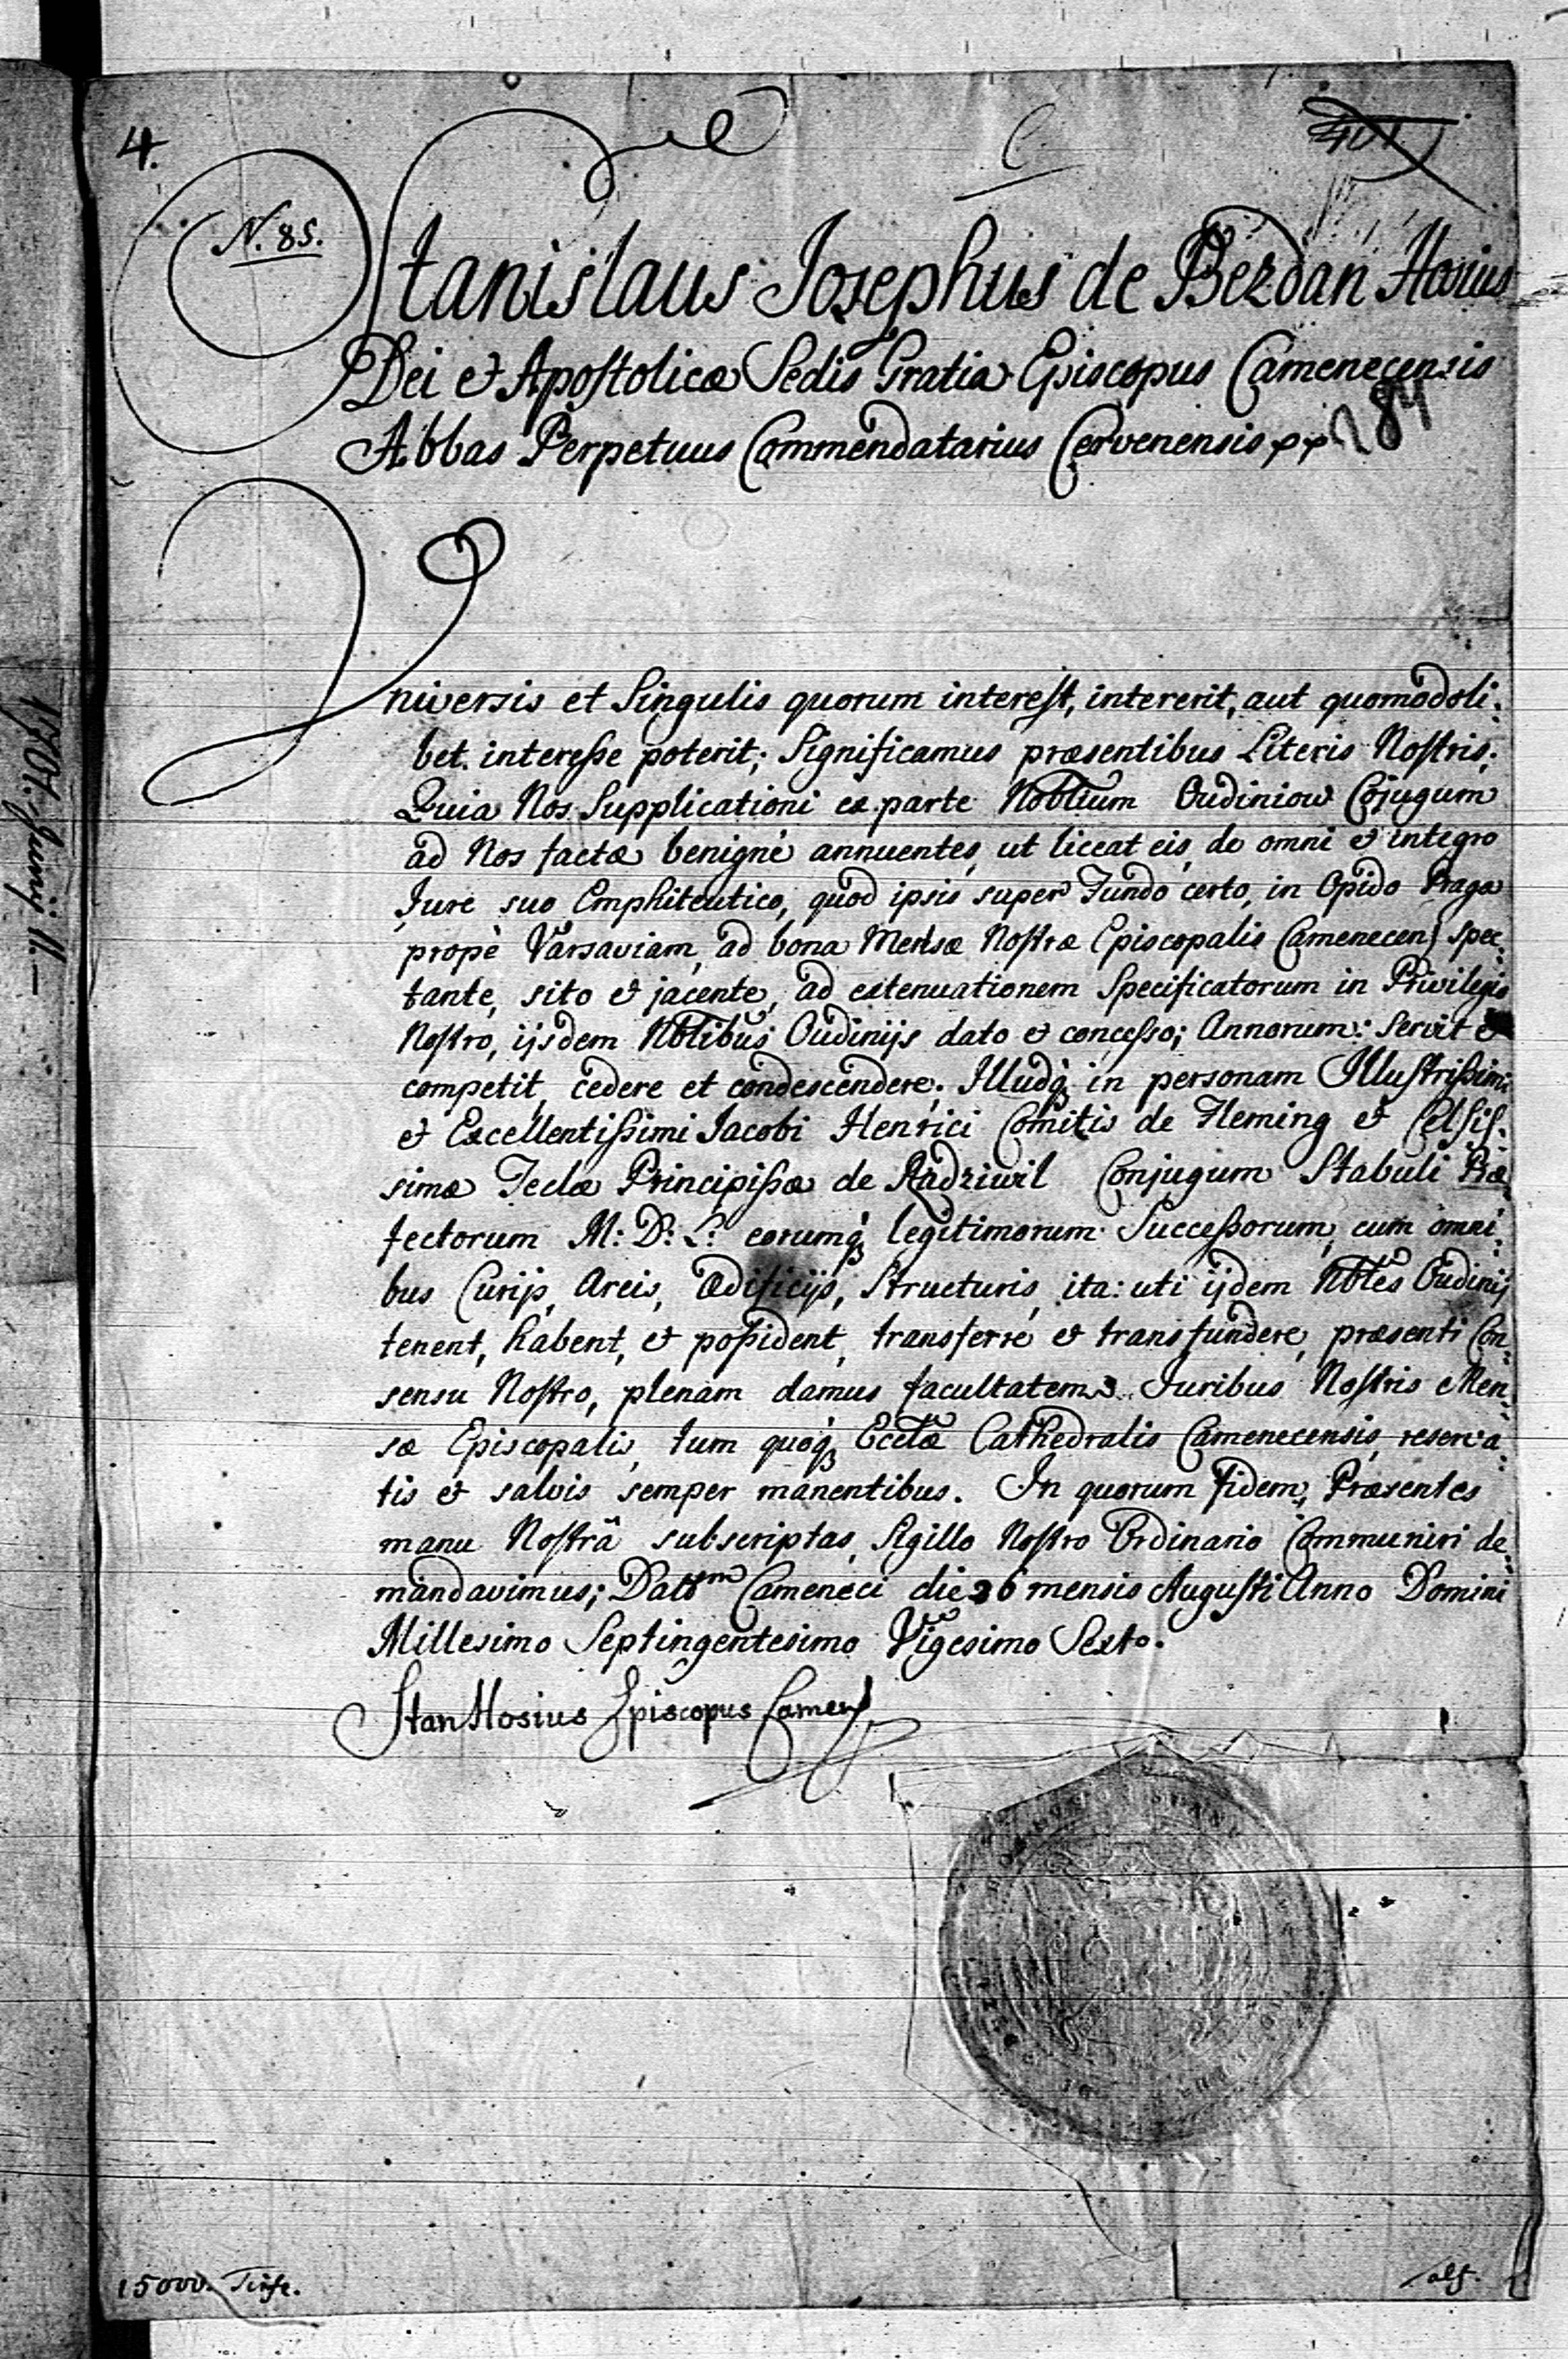 4.
C.
401.
N. 85.
Stanislaus Josephus de Bezdan Hosius
Dei et Apostolicæ Sedis Gratia Episcopus Camenecensis
284
Abbas Perpetuus Commendatarius Cervenensis
Universis et Singulis quorum interest, intererit, aut quomodoli:
bet. interesse poterit; Significamus præsentibus Literis Nostris;
Quia Nos Supplicationi ex parte Nobliūm Oudiniow Cojugum
ad Nos factæ benigne annuentes, ut liceat eis, de omni et integro
Jure suo Emphiteutico, quod ipsis super Fundo certo, in Opido Praga
prope Varsaviam, ad bona Mensæ Nostræ Episcopalis Camenecen spec:
tante, sito et jacente, ad extenuationem Specificatorum in Privilegio
Nostro, ijsdem Nobilibus Oudinijs dato et concesso; Annorum: servit et
competit, cedere et condescendere; Illudq; in personam Illustrissimi
et Excellentissimi Jacobi Henrici Comitis de Fleming et Celsis:
simæ Teclæ Principissæ de Radziwil Conjugum Stabuli Præ
fectorum M: D: L: eorumq; legitimorum Successorum, cum omni:
bus Curijs, Areis, Ædificijs, Structuris, ita: uti ijdem Nobles Oudinij
tenent, habent, et possident, transferre et transfundere, præsenti Con:
sensu Nostro, plenam damus facultatem. Juribus Nostris Men:
sæ Episcopalis, tum quoq; Ecclæ Cathedralis Camenecensis, reserva:
tis et salvis semper manentibus. In quorum fidem, Præsentes
manu Nostrâ subscriptas, Sigillo Nostro Ordinario Communiri de:
mandavimus; Datt^m Cameneci die 26 mensis Augusti Anno Domini
Millesimo Septingentesimo Vigesimo Sexto.
Stan Hosius Episcopus Camen
15000. Tinfe.
1701. Junij 11.—